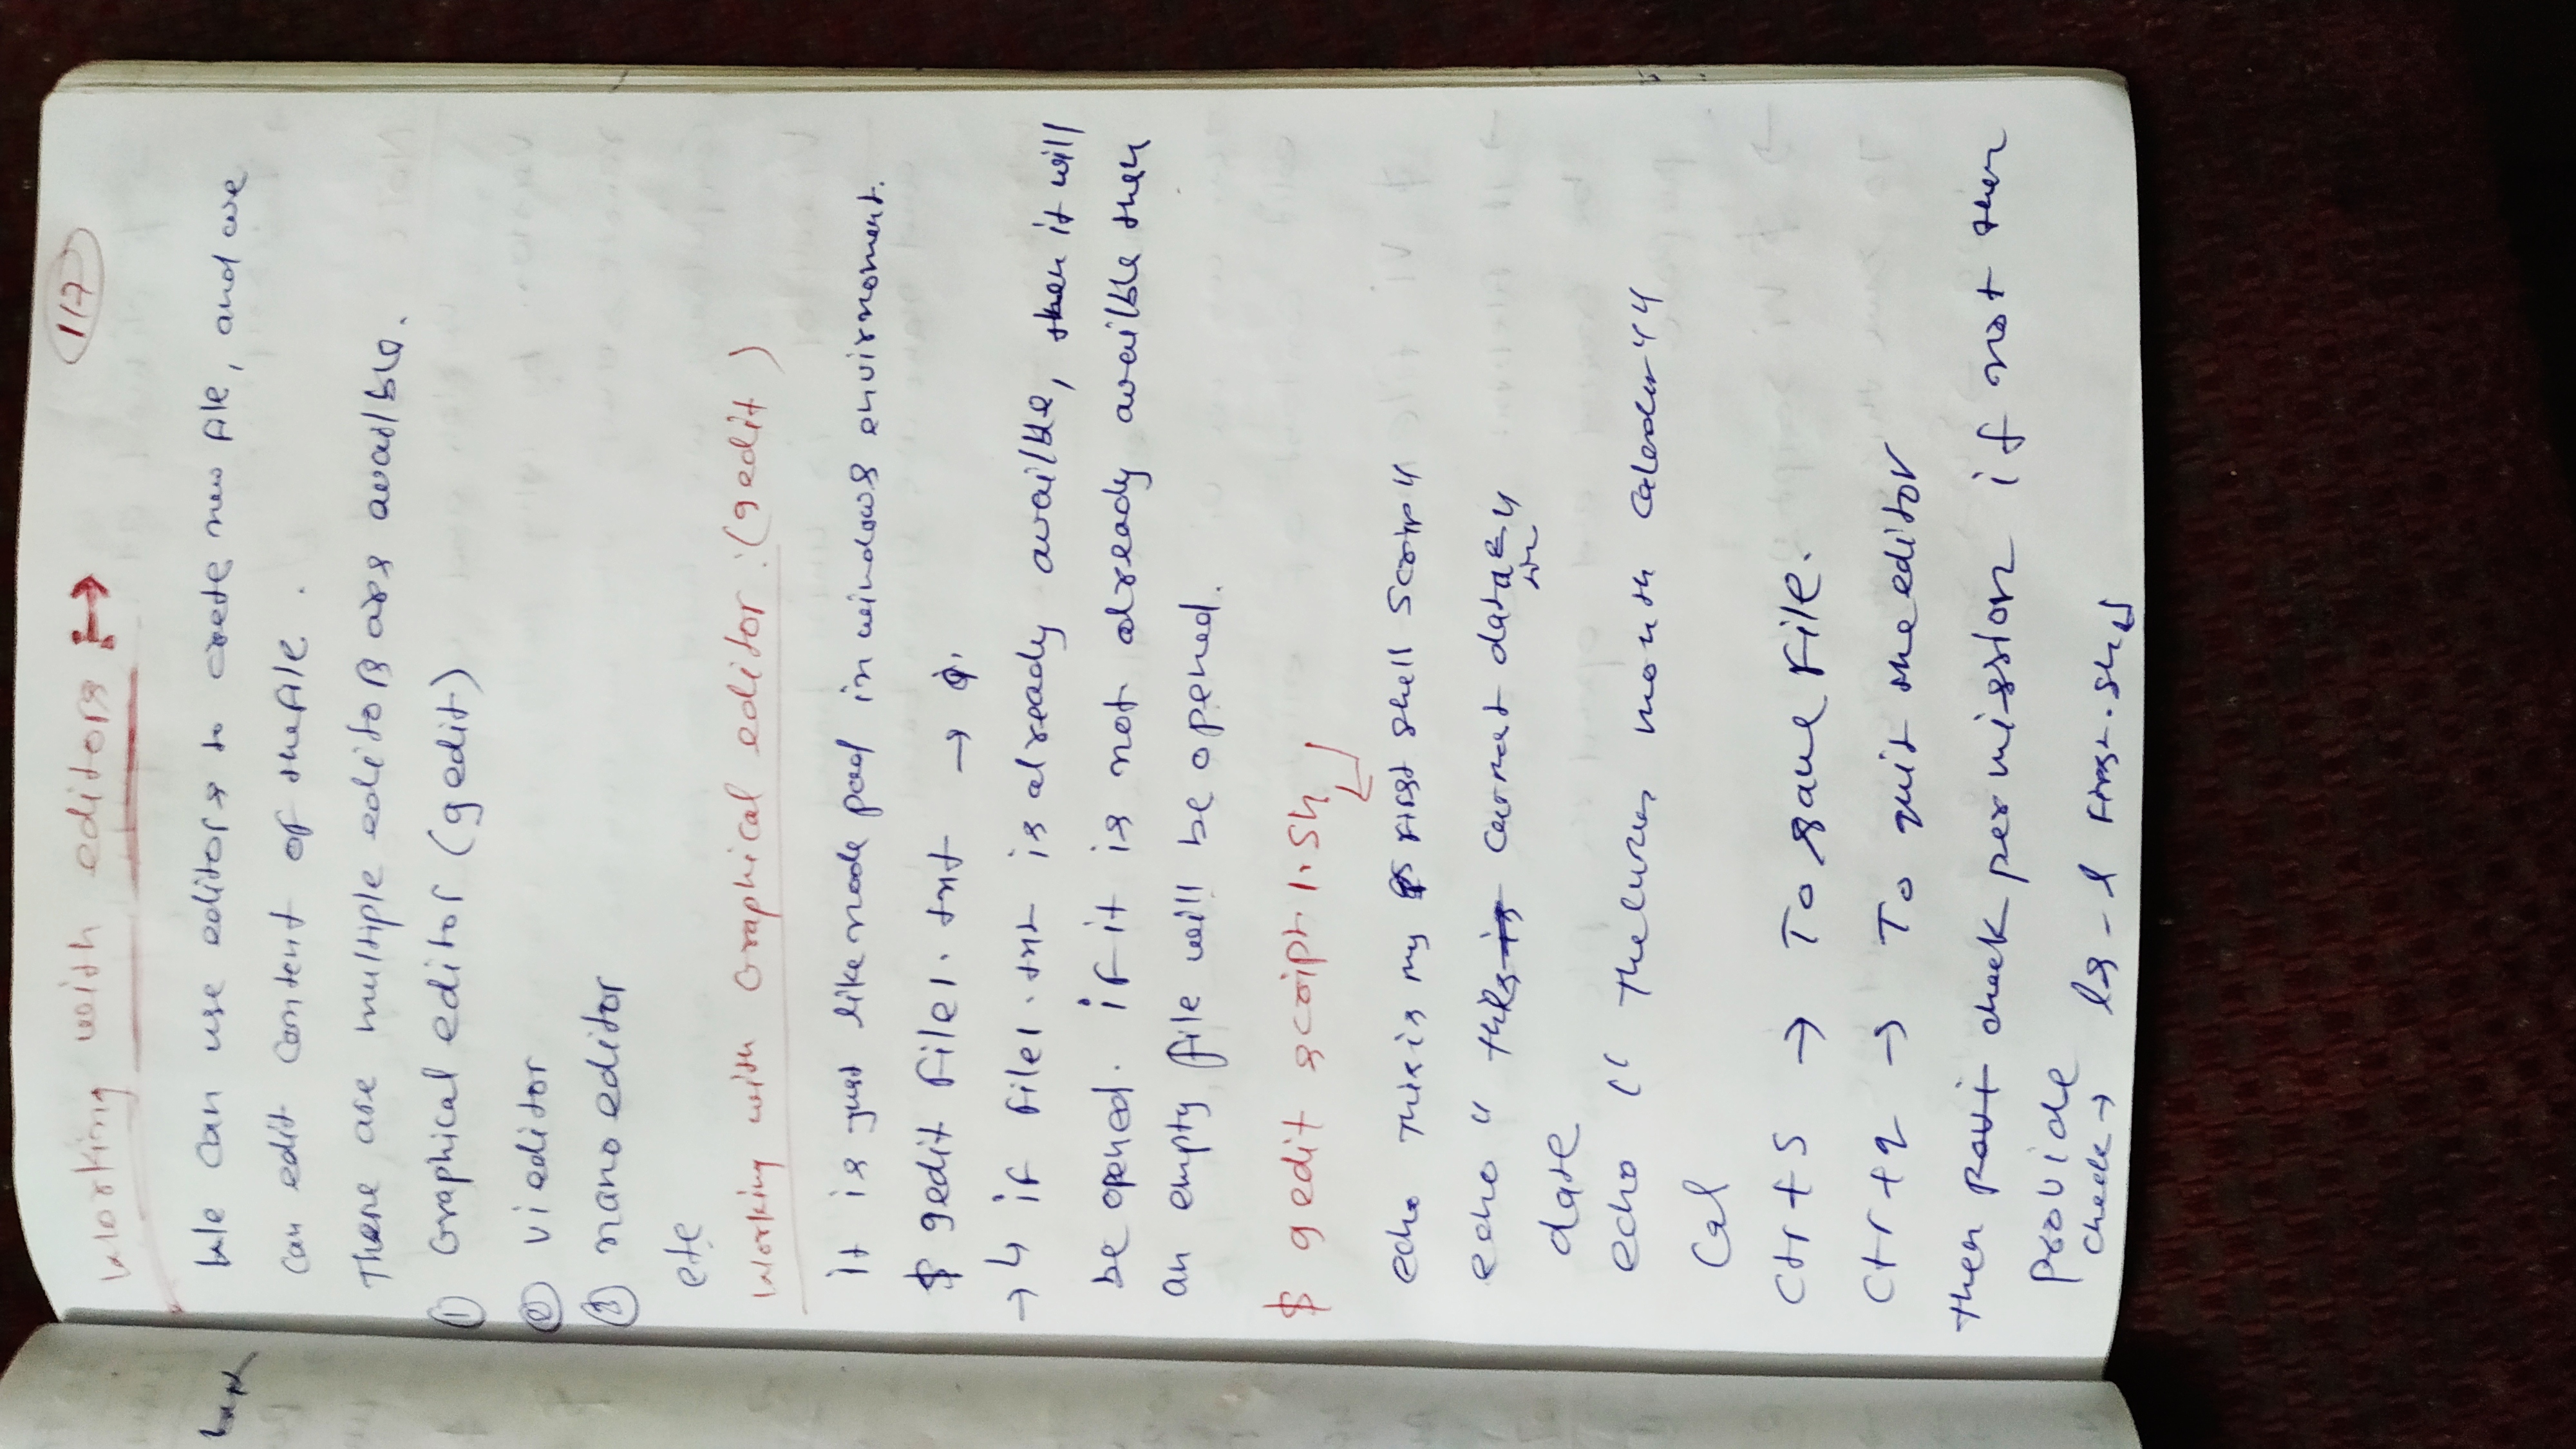 117
Working with editors :→
We can use editors to crete new file, and we
can edit content of the file .
There are multiple editors are availble.
① Graphical editor (gedit)
② vi editor
③ nano editor
etc
Working with Graphical editor :(gedit )
it is just like node pad in windows envirnoment.
$ gedit file1.txt →
→ ↳ if file1.txt is already availble, then it will
be opened. if it is not already availble then
an empty file will be opened.
$ gedit script1.sh
echo This is my first shell Scrip"
echo " this is current date
date
echo " The month
Cal
Ctr+S → To save File.
Ctr+q → To quit the editor
then check permission if not then
provide
check → ls -l first.sh